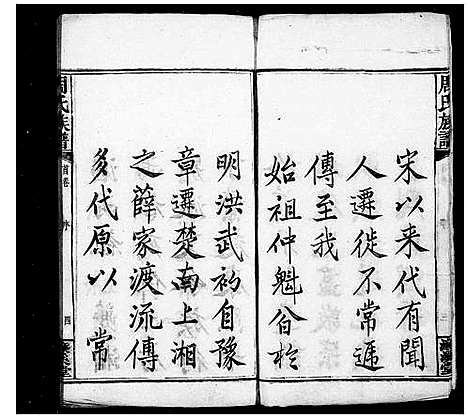 宋以来代有聞
人遷徙不常遞
傳至我
始祖仲魁公於
明洪武初自豫
章遷楚南上湘
之薛家渡流傳
多代原以常
周氏族譜
首卷
四